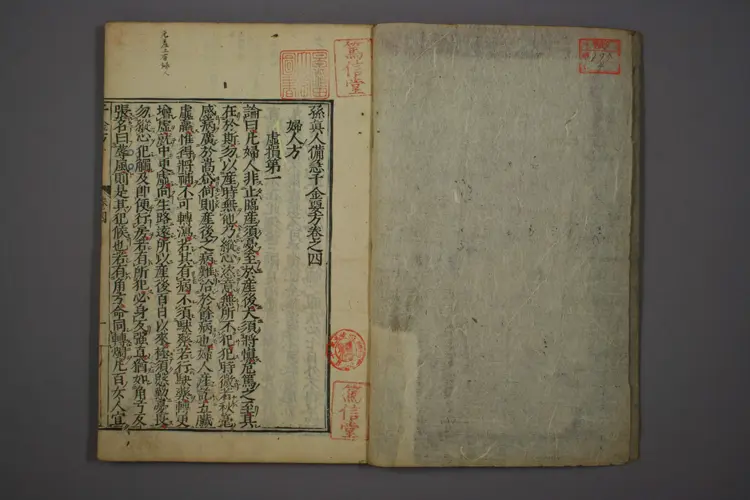 篤信堂
孫真人備急千金要方卷之四
婦人方
虛損第一
論曰凡婦人非止臨產須憂至於產後大須將慎危篤之至其
在於斯勿以產時無他乃縱心恣意無所不犯犯時微若秋毫
感病廣於嵩岱何則產後之病難治於餘病也婦人產訖五臟
虛羸惟得將補不可轉瀉若其有病不須駃藥若行駃藥轉更
增虛就中更虛向生路遠所以產後百日以來極須殷勤憂畏
勿縱心犯觸及即便行房若有所犯必身反強直猶如角弓反
張名曰蓐風則是其犯候也若有角弓命同轉燭凡百女人宜
篤信堂